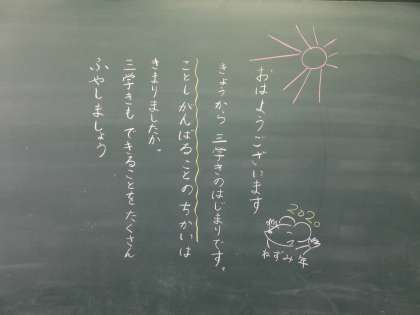 おはようございます
きょうから 三学きのはじまりです。
ことし がんばることの ちかいは
きまりましたか。
三学きも できることを たくさん
ふやしましょう
2020
ねずみ年